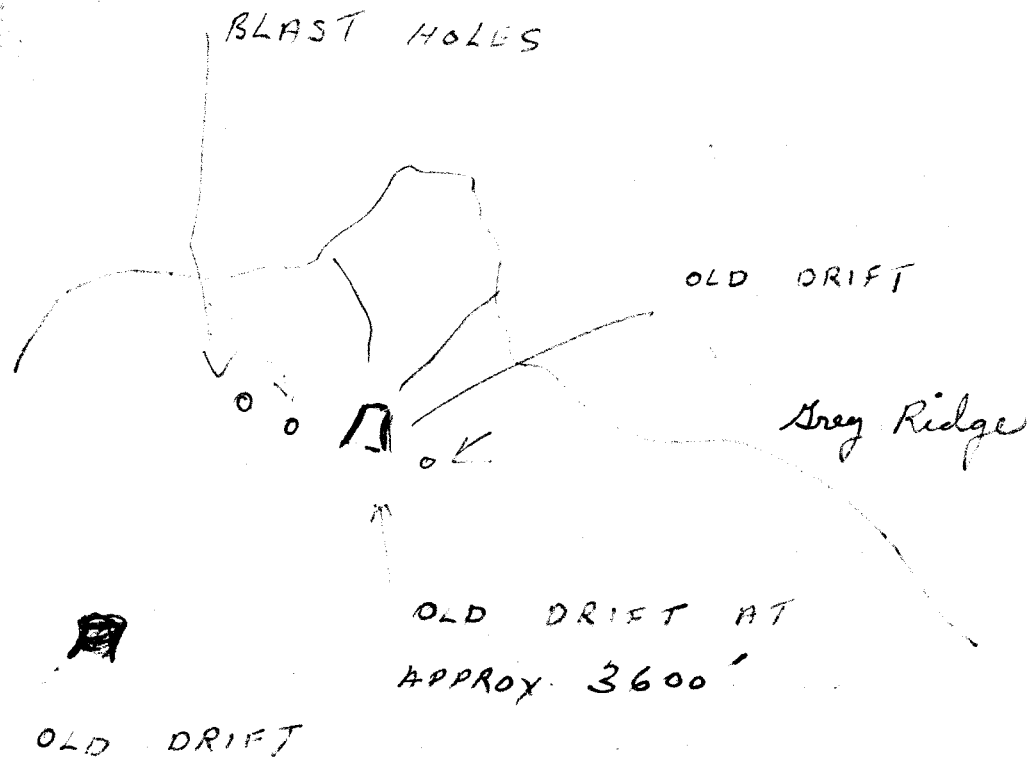 BLAST HOLES
OLD DRIFT
Grey Ridge
OLD DRIFT AT
APPROX. 3600'
OLD DRIFT